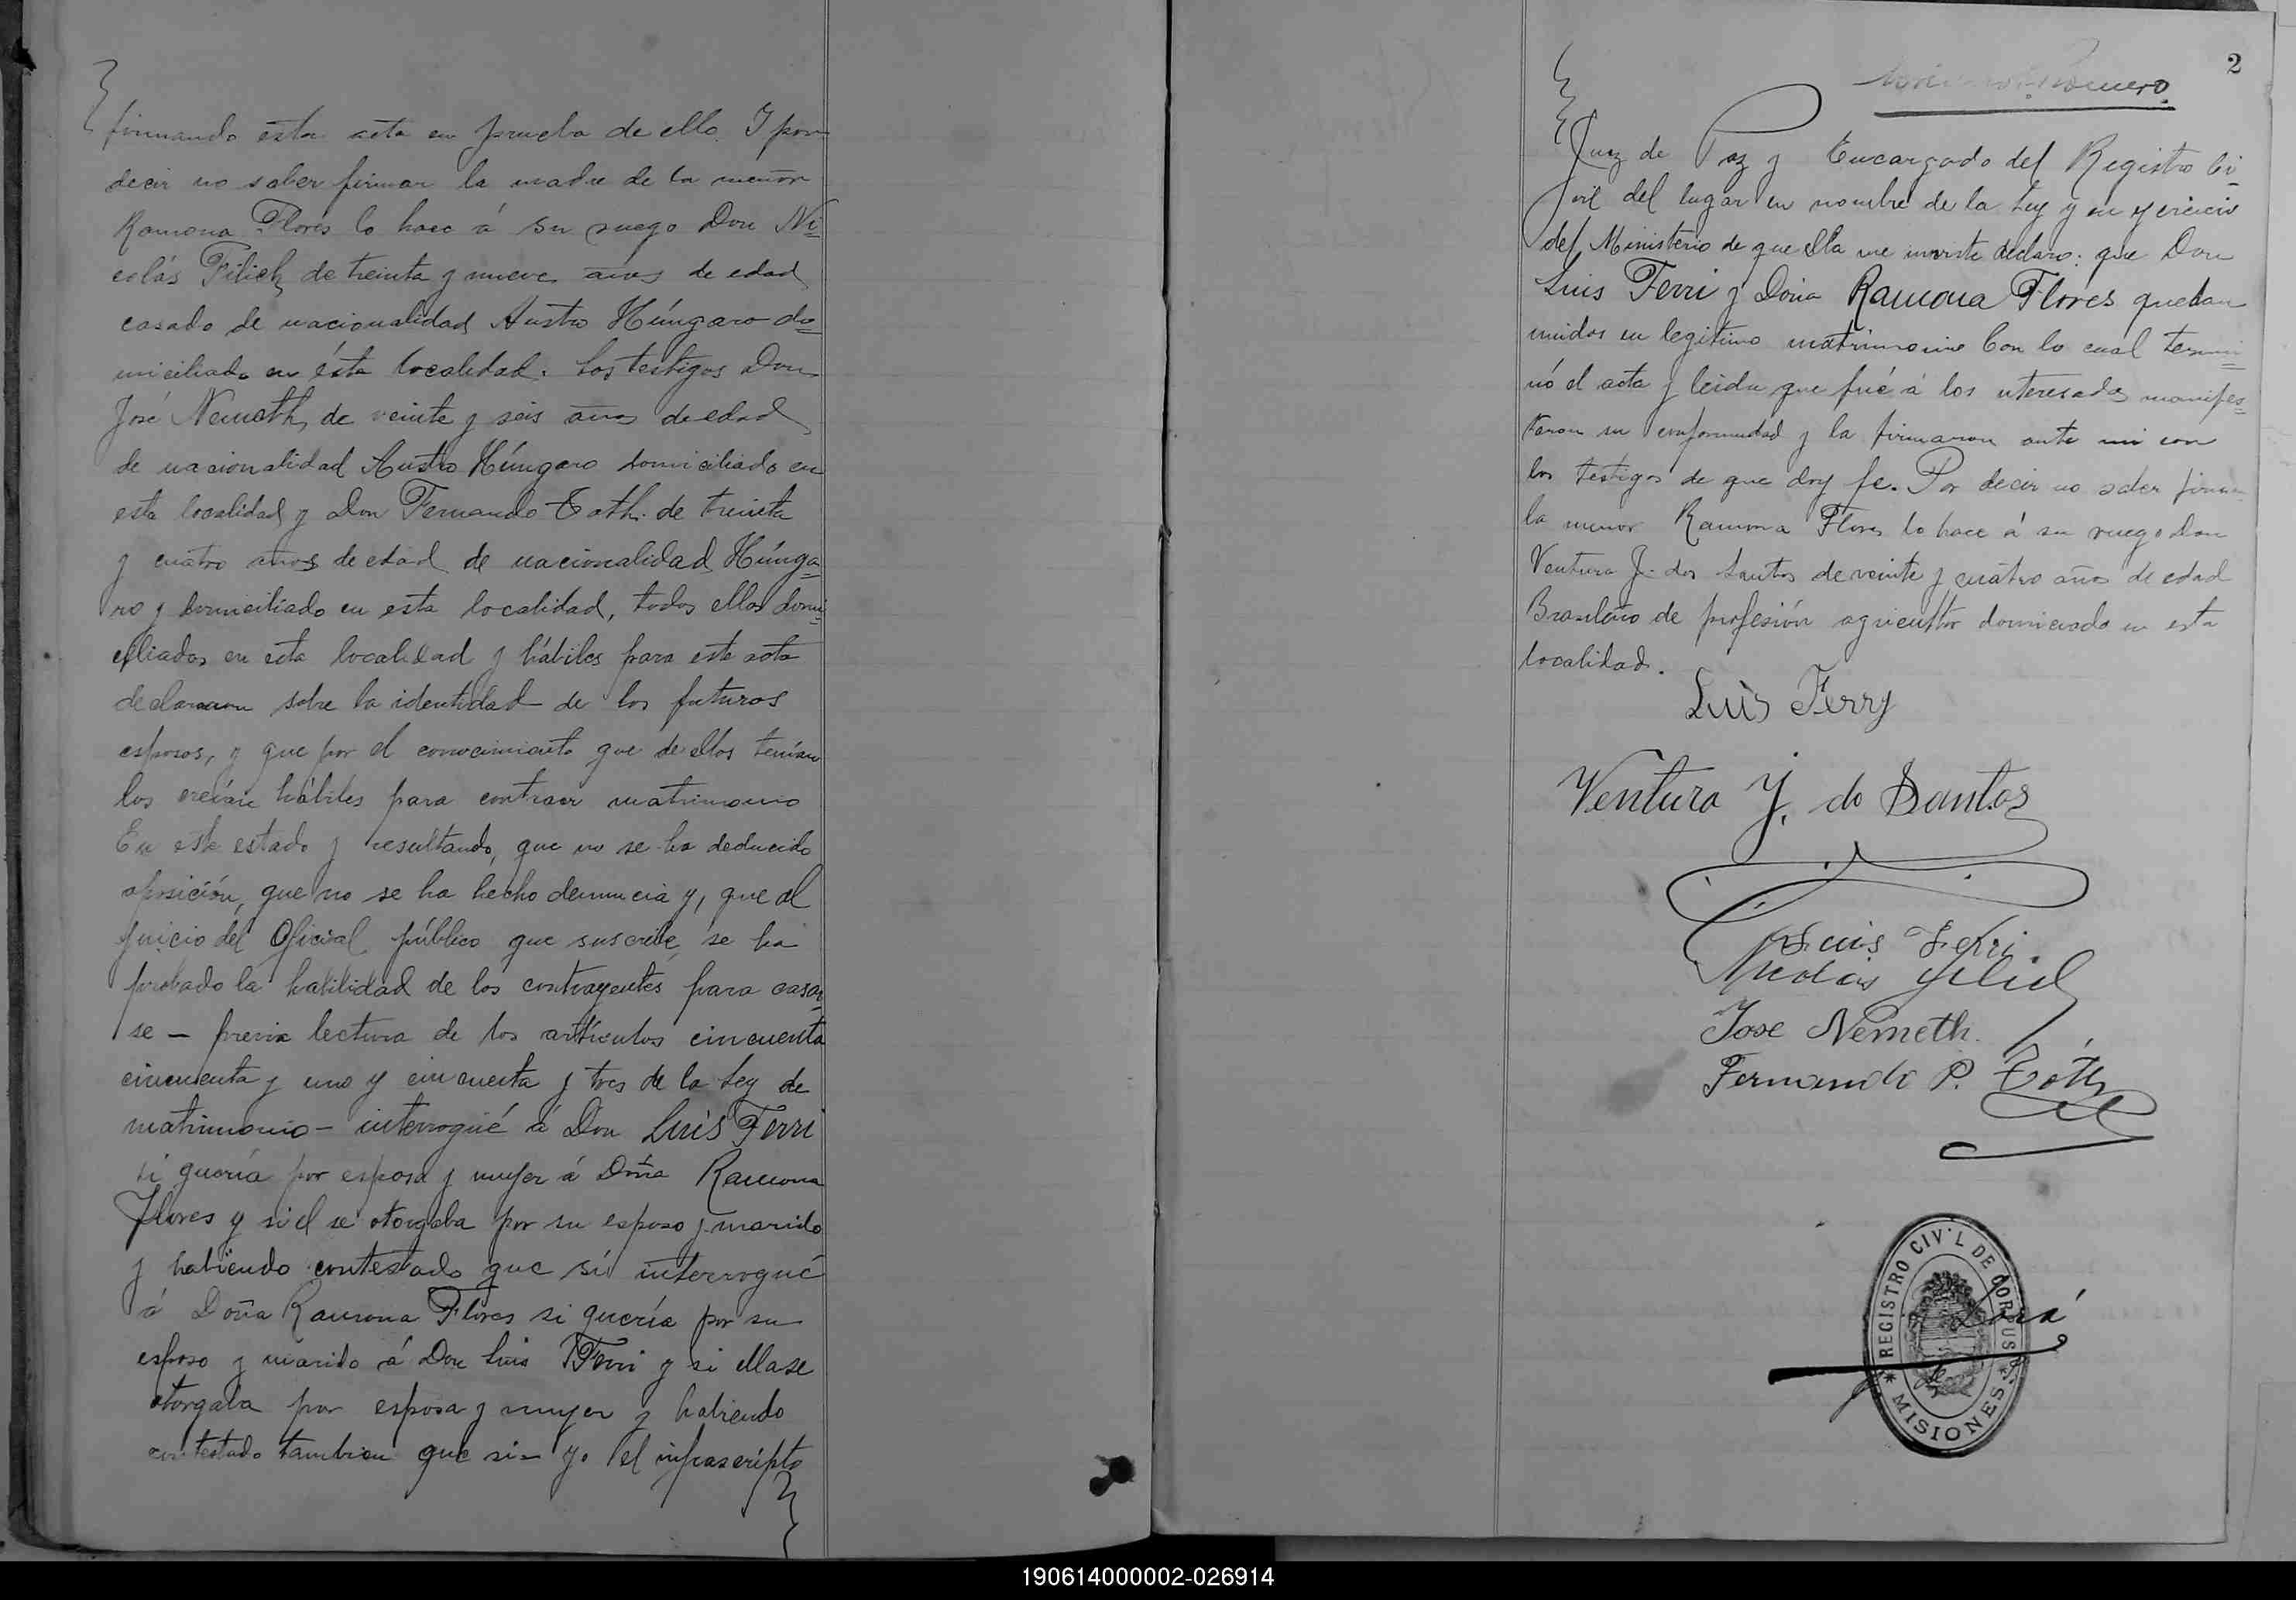 firmando esta acta en prueba de ello. I por
decir no saber firmar la madre de la menor
Ramona Flores lo hace á su ruego Don Ni=
colás Filich de treinta y nueve años de edad
casado de nacionalidad Austro Húngaro do=
miciliado en ésta localidad. Los testigos Don
José Nemeth de veinte y seis años de edad
de nacionalidad Austro Húngaro domiciliado en
esta localidad y Don Fernando Toth de treinta
y cuatro años de edad de nacionalidad Húnga=
ro y domiciliado en esta localidad, todos ellos domi=
ciliados en esta localidad y hábiles para este acto
declararon sobre la identidad de los futuros
esposos, y que por el conocimiento que de ellos tenían
los creían hábiles para contraer matrimonio
En este estado y resultando, que no se ha deducido
oposición, que no se ha hecho denuncia y, que al
juicio del Oficial público que suscribe, se ha
probado la habilidad de los contrayentes para casar=
se — previa lectura de los artículos cincuenta
cincuenta y uno y cincuenta y tres de la Ley de
matrimonio — interrogué á Don Luis Ferri
si quería por esposa y mujer á Doña Ramona
Flores y si el se otorgaba por su esposo y marido
y habiendo contestado que sí interrogué
á Doña Ramona Flores si quería por su
esposo y marido á Don Luis Ferri y si ella se
otorgaba por esposa y mujer y habiendo
contestado tambien que si — yo el infrascripto
2
Romero
Juez de Paz y Encargado del Registro Ci=
vil del lugar en nombre de la Ley y en ejercicio
del Ministerio de que ella me inviste declaro: que Don
Luis Ferri y Doña Ramona Flores quedan
unidos en legitimo matrimonio Con lo cual termi=
nó el acta y leida que fué á los interesados manifes=
taron su conformidad y la firmaron ante mi con
los testigos de que doy fe. Por decir no saber firmar
la menor Ramona Flores lo hace á su ruego Don
Ventura J. dos Santos de veinte y cuatro años de edad
Brasilero de profesión agricultor domiciado en esta
localidad.
Luis Ferry
Ventura J. do Santos
Luis Ferri
Nicolás Filich
Jose Nemeth.
Fernando P. Tóth
REGISTRO CIVIL DE CORPUS
* MISIONES *
190614000002-026914